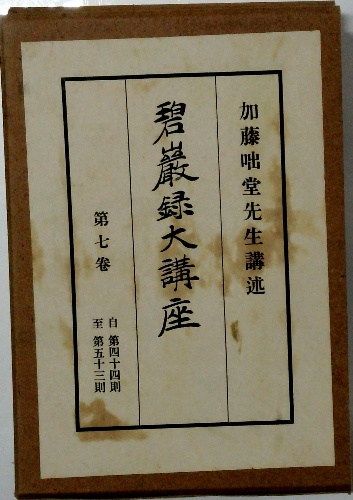 加藤咄堂先生講述
碧巖録大講座
第七卷
自 第四十四則
至 第五十三則